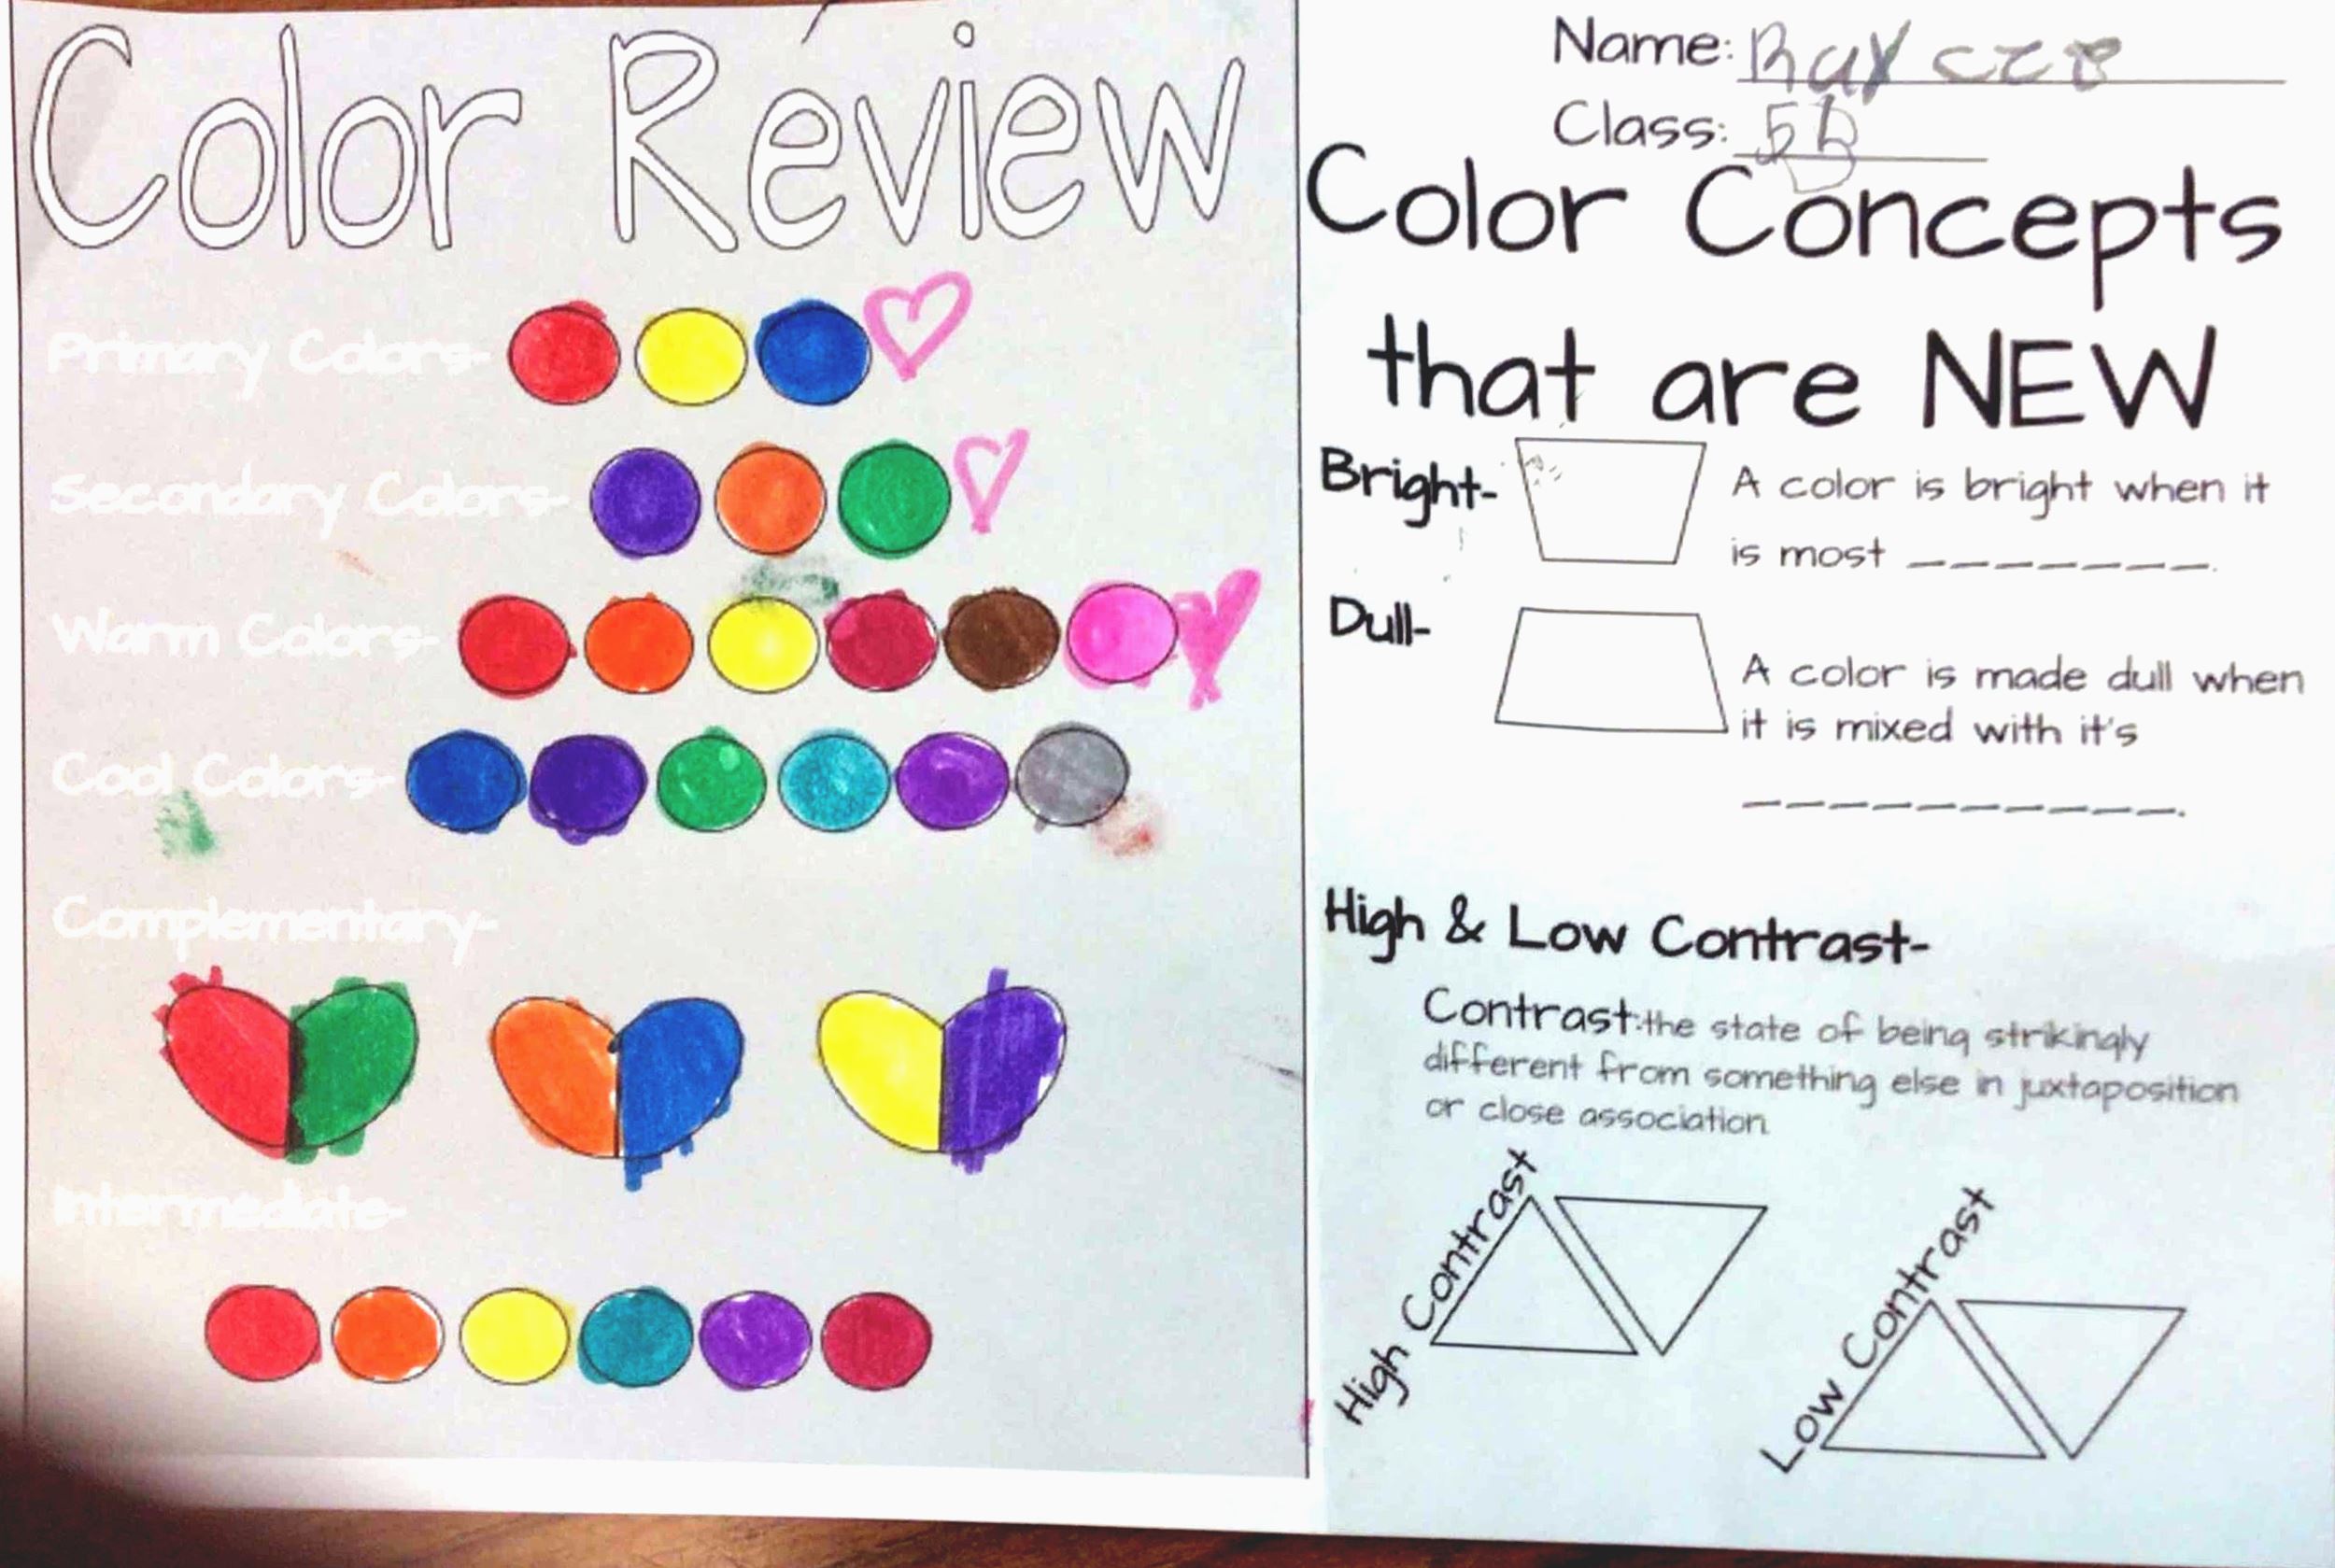 Color Review
Primary Colors-
Secondary Colors-
Warm Colors-
Cool Colors-
Complementary-
Intermediate-
Name:
Class: 5B
Color Concepts
that are NEW
Bright-
A color is bright when it
is most _ _ _ _ _ _ _.
Dull-
A color is made dull when
it is mixed with it's
_ _ _ _ _ _ _ _ _ _.
High & Low Contrast-
Contrast:the state of being strikingly
different from something else in juxtaposition
or close association
High Contrast
Low Contrast